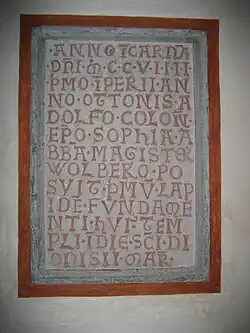 · ANNO · ICARNA
DNI · M · CC · VIIII ·
PMO · IPERII · AN
NO · OTTONIS · A
DOLFO · COLOÑ ·
EPO · SOPHIA · A
BBA · MAGISTER
WOLBERO · PO
SVIT · PMV · LAP
IDE · FVNDAME
NTI · HVI · TEM
PLI · I DIE · SCI · DI
ONISII · MAR ·